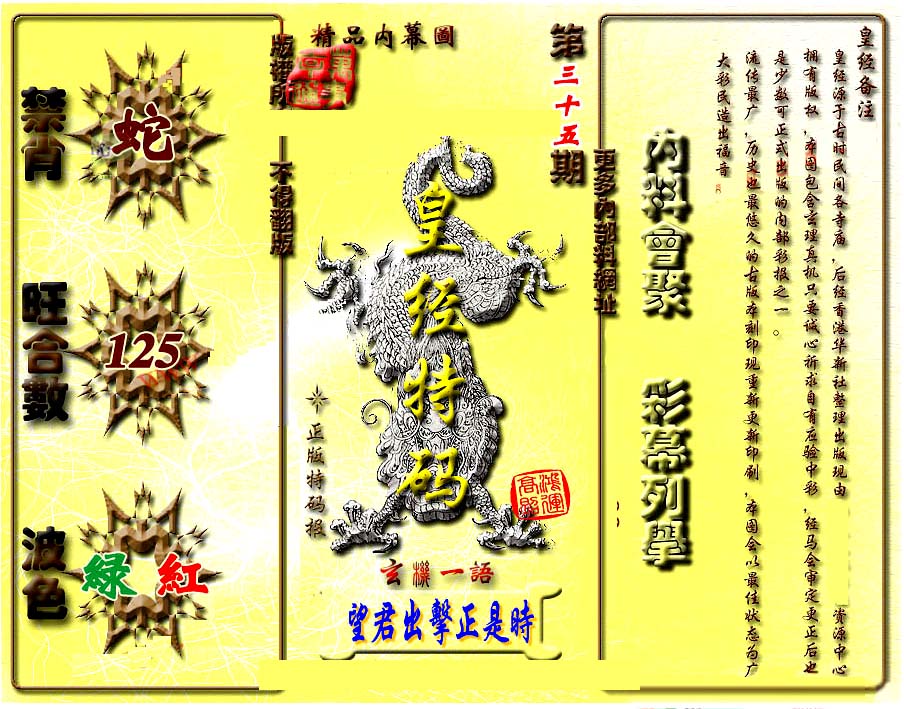 皇经备注
皇经源于古时民间各寺庙，后经香港华新社整理出版现由　资源中心
拥有版权，本图包含玄理真机只要诚心祈求自有应验中彩，经马会审定更正后也
是少数可正式出版的内部彩报之一。
流传最广，历史也最悠久的古版本刻印现重新更新印刷，本图会以最佳状态为广
大彩民造出福音
内料會聚
彩幕列舉
更多內部料網址
第三十五期
精品内幕圖
皇经特码
正版特码报
鴻運高照
玄機一語
望君出擊正是時
版權所
不得翻版
禁肖
蛇
旺合數
125
波色
綠 紅